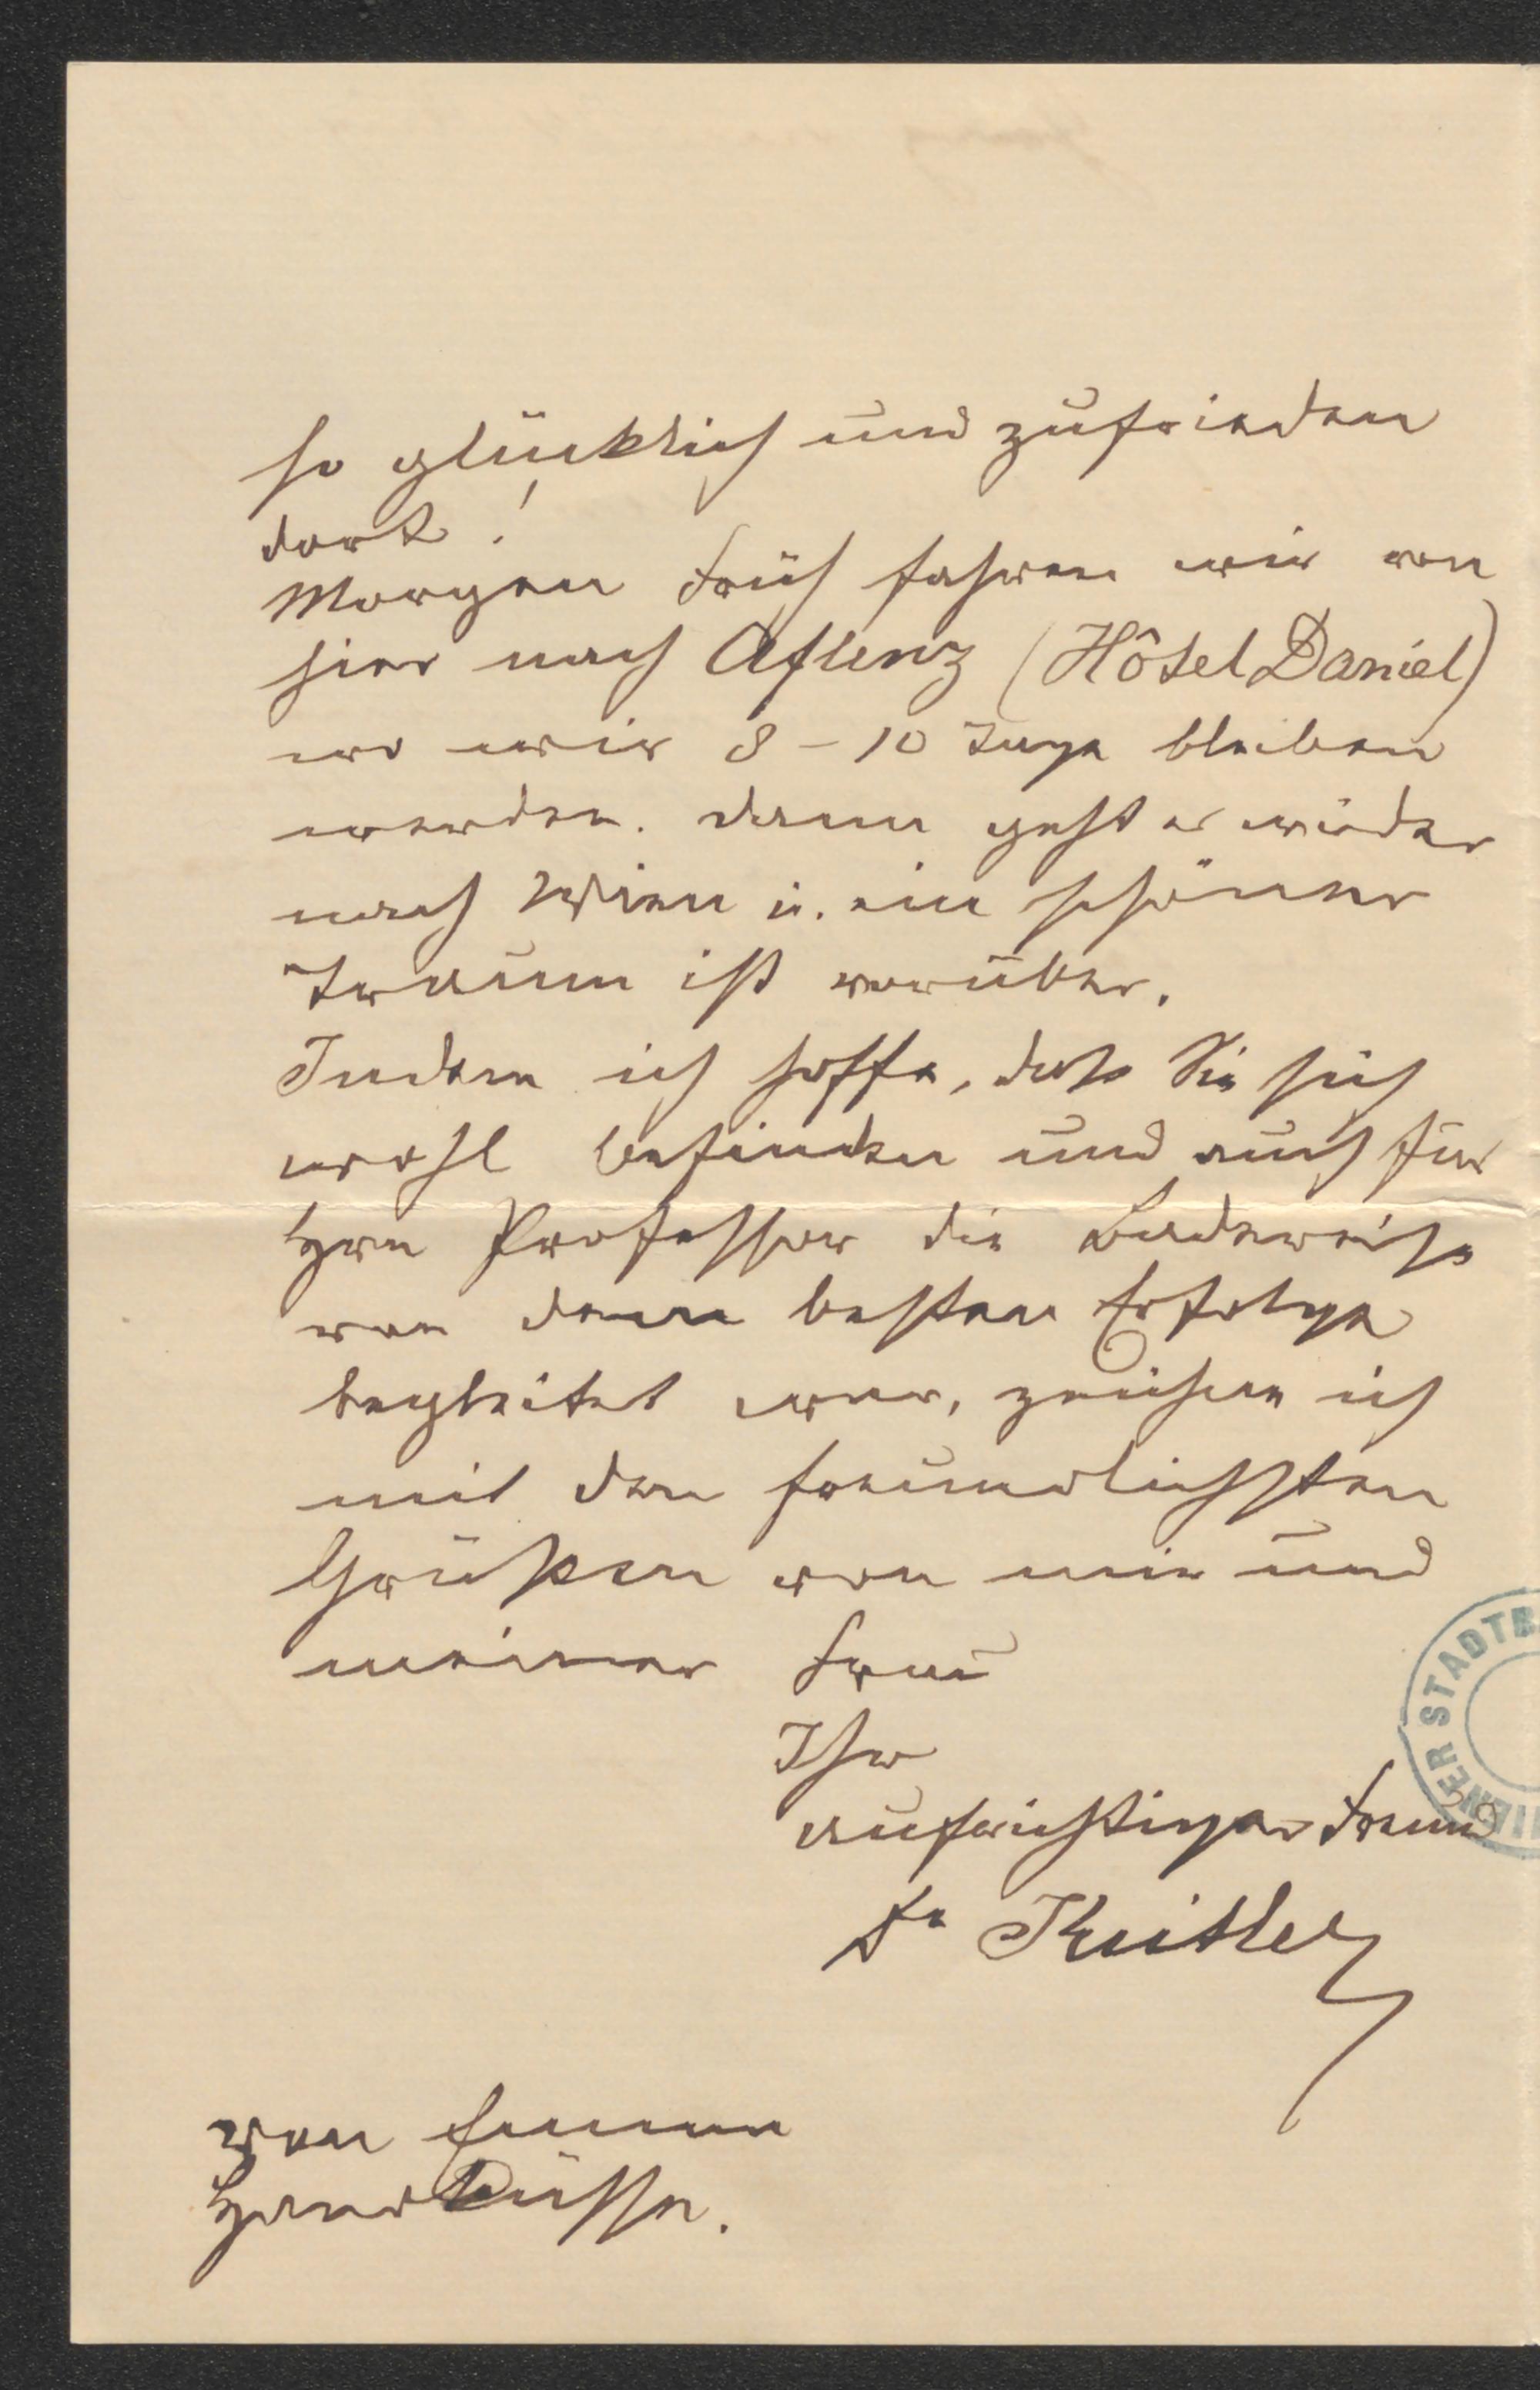 so glücklich und zufrieden
dort!
Morgen früh fahren wir von
hier nach Aflenz (Hôtel Daniel)
wo wir 8 – 10 Tage bleiben
werden. dann geht es wieder
nach Wien u. ein schöner
Traum ist vorüber.
Indem ich hoffe, daß Sie sich
wohl befinden und auch für
Hrn Professor die Badereise
von dem besten Erfolge
begleitet war, zeichne ich
mit den freundlichsten
Grüßen von mir und
meiner Frau
Ihr
aufrichtiger Freund
Dr
von
Handküsse.
WIENER STADTB